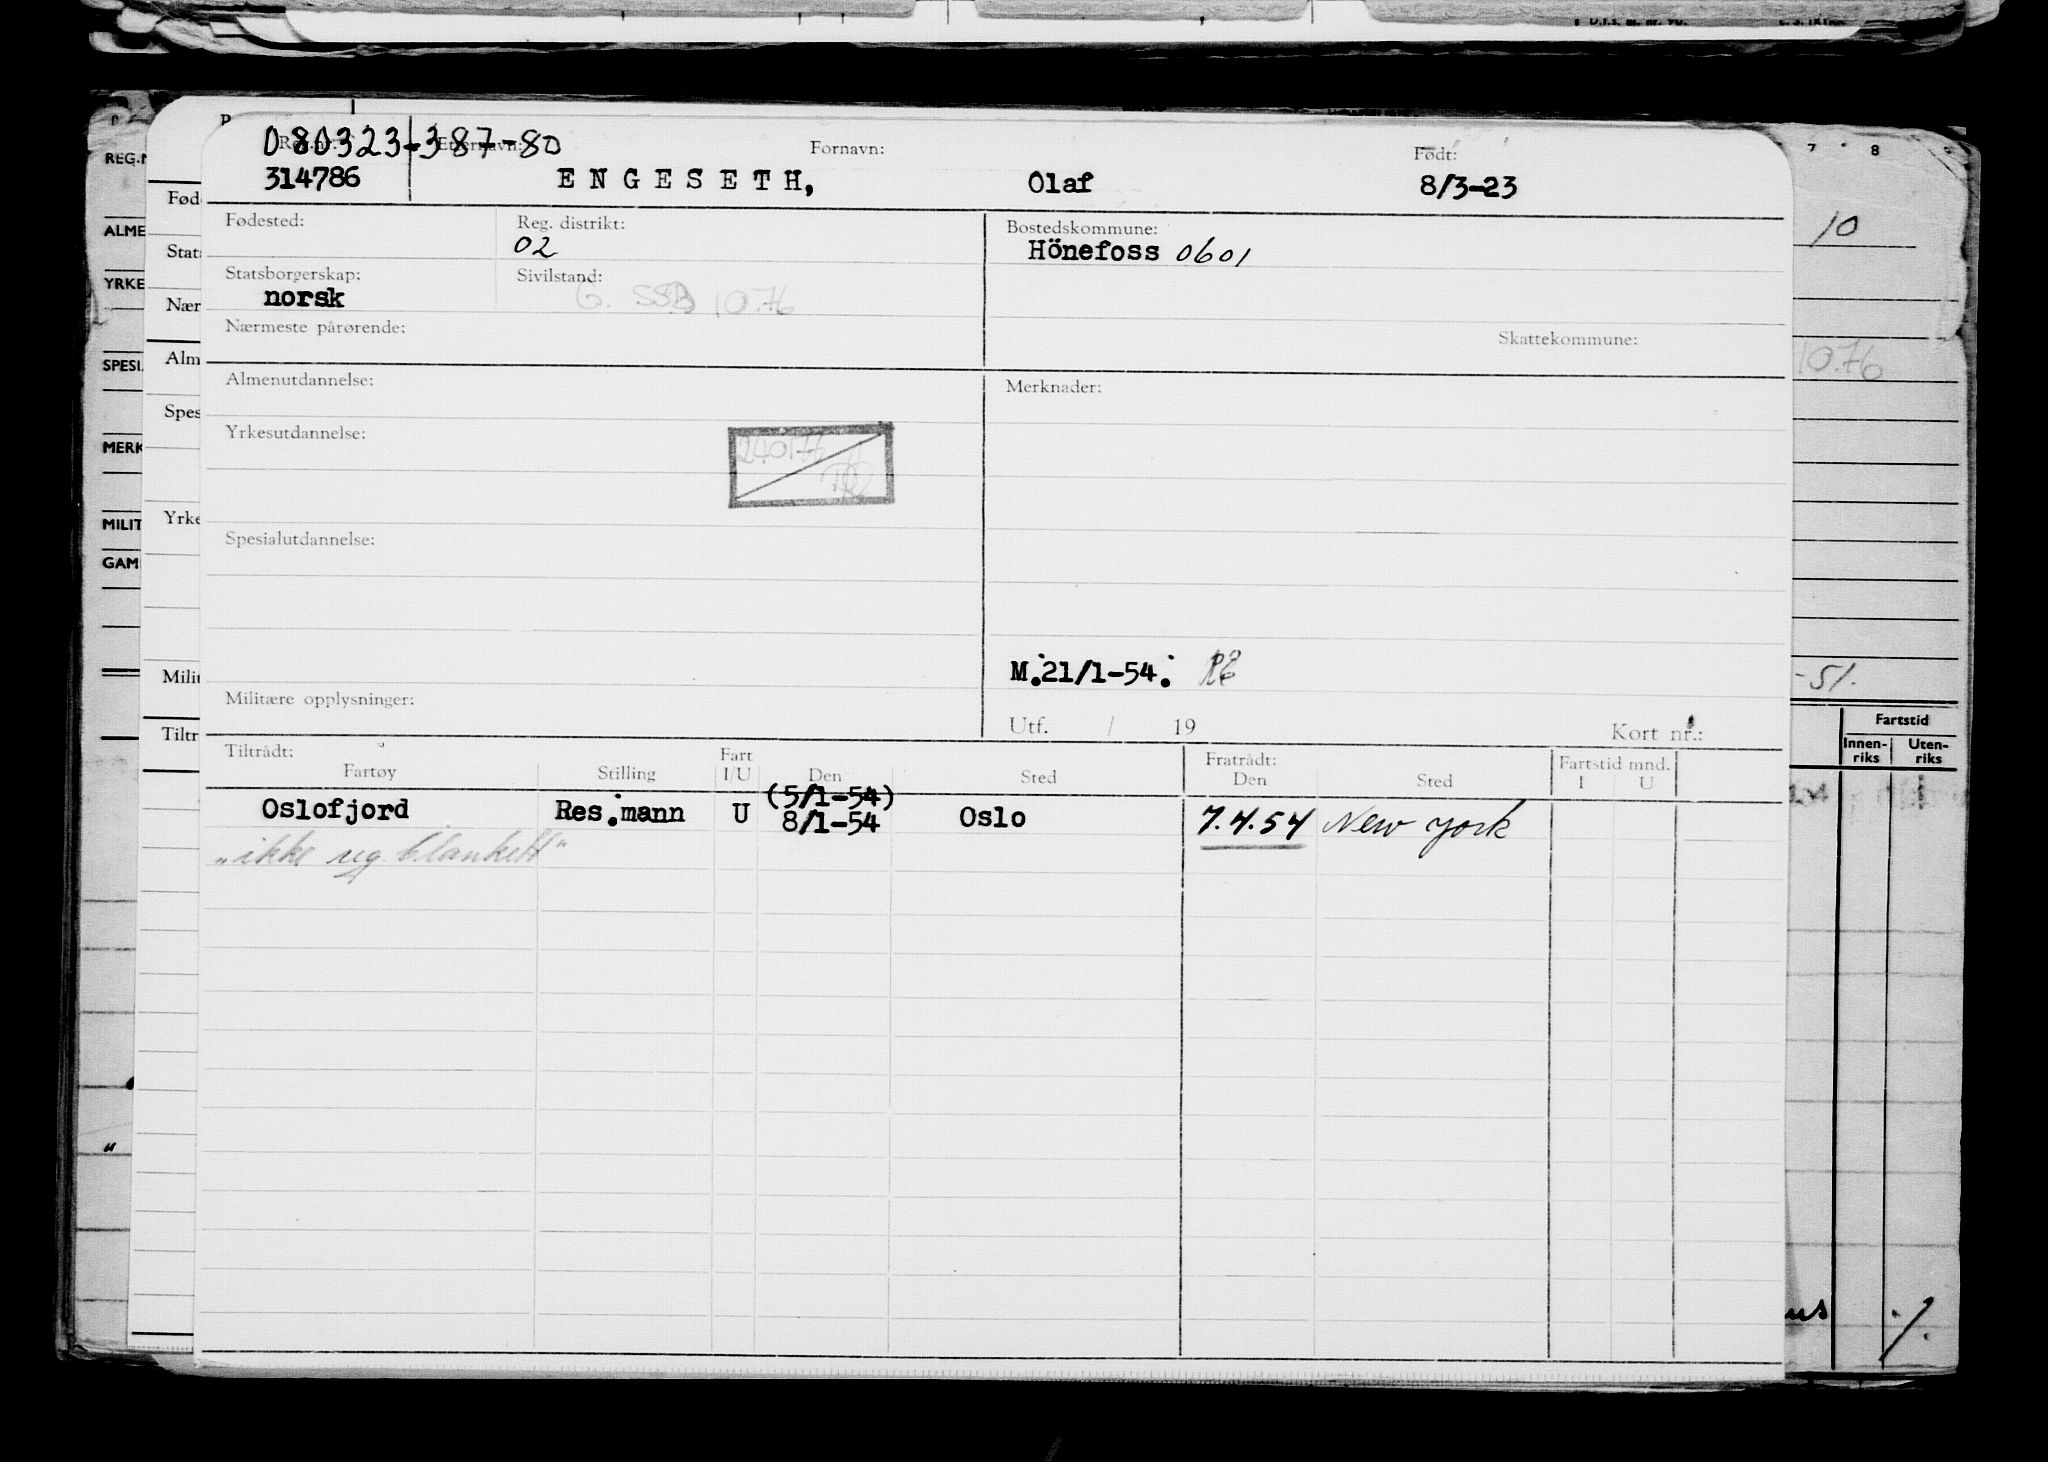 080323-387-80
Reg.nr. Etternavn: Fornavn: Født:
314786 ENGESETH, Olaf 8/3-23
Fødested: Reg. distrikt: Bostedskommune:
02 Hönefoss 0601
Statsborgerskap: Sivilstand:
norsk G. SSB 10.76
Nærmeste pårørende: Skattekommune:
Almenutdannelse: Merknader:
Yrkesutdannelse:
Spesialutdannelse:
M.21/1-54.
Militære opplysninger:
Utf. / 19 Kort nr.:
Tiltrådt: Fratrådt:
Fartøy Stilling Fart I/U Den Sted Den Sted Fartstid mnd. I U
(5/1-54)
Oslofjord Res.mann U 8/1-54 Oslo 7.4.54 New York
"ikke reg. blankett"
REG.N
ALME
YRKE
SPESI
MERK
MILIT
GAM
Fød
Stat
Nær
Alm
Spes
Yrke
Milit
Tiltr
7 8
10
10.76
-51.
Fartstid
Innen-riks Uten-riks